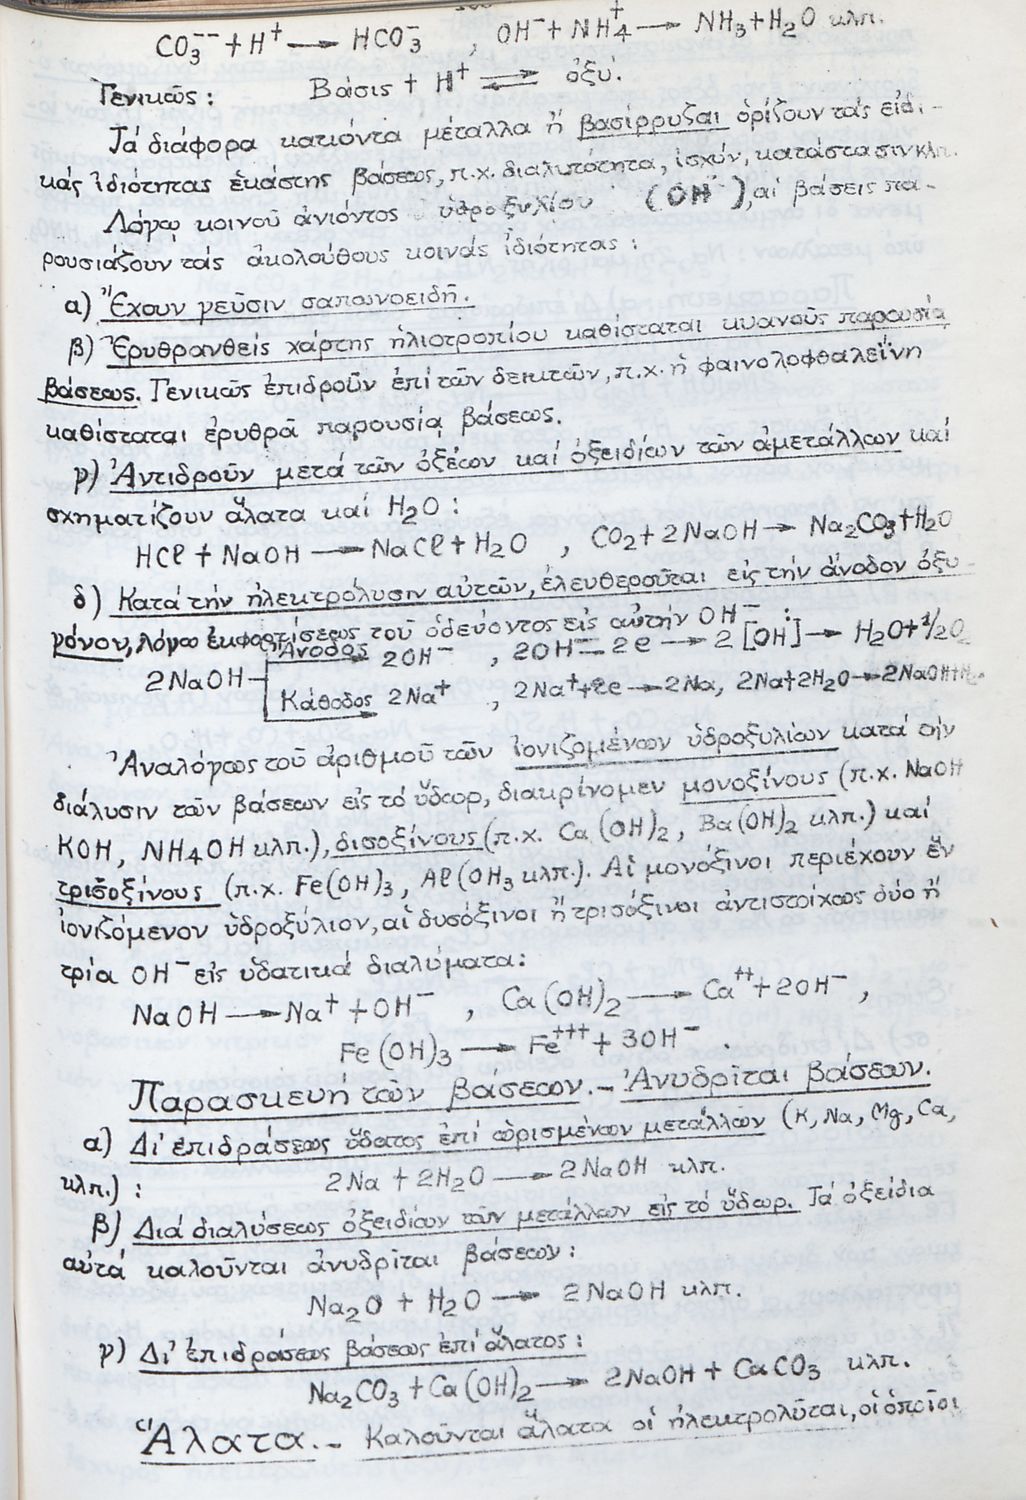 CO₃⁻⁻ + H⁺ → HCO₃⁻ , OH⁻ + NH₄⁺ → NH₃ + H₂O κλπ.
Γενικῶς : Βάσις + H⁺ ⇌ ὀξύ.
Τά διάφορα κατιόντα μέταλλα ἤ βασίρρυζαι ὁρίζουν τάς εἰδι-
κάς ἰδιότητας ἑκάστης βάσεως, π.χ. διαλυτότητα, ἰσχύν, κατάστασιν κλπ.
Λόγῳ κοινοῦ ἀνιόντος ὑδροξυλίου (OH⁻), αἱ βάσεις πα-
ρουσιάζουν τάς ἀκολούθους κοινάς ἰδιότητας :
α) Ἔχουν γεῦσιν σαπωνοειδῆ.
β) Ἐρυθρανθείς χάρτης ἡλιοτροπίου καθίσταται κυανοῦς παρουσίᾳ
βάσεως. Γενικῶς ἐπιδροῦν ἐπί τῶν δεικτῶν, π.χ. ἡ φαινολοφθαλεΐνη
καθίσταται ἐρυθρᾶ παρουσίᾳ βάσεως.
γ) Ἀντιδροῦν μετά τῶν ὀξέων καί ὀξειδίων τῶν ἀμετάλλων καί
σχηματίζουν ἅλατα καί H₂O :
HCl + NaOH → NaCl + H₂O , CO₂ + 2NaOH → Na₂CO₃ + H₂O
δ) Κατά τήν ἠλεκτρόλυσιν αὐτῶν, ἐλευθεροῦται εἰς τήν ἄνοδον ὀξυ-
γόνον, λόγῳ ἐκφορτίσεως τοῦ ὁδεύοντος εἰς αὐτήν OH⁻ :
Ἄνοδος 2OH⁻ , 2OH⁻ − 2e → 2[OH] → H₂O + 1/2O₂
2NaOH
Κάθοδος 2Na⁺ , 2Na⁺ + 2e → 2Na, 2Na + 2H₂O → 2NaOH + H₂
Ἀναλόγως τοῦ ἀριθμοῦ τῶν ἰονιζομένων ὑδροξυλίων κατά τήν
διάλυσιν τῶν βάσεων εἰς τό ὕδωρ, διακρίνομεν μονοξίνους (π.χ. NaOH
KOH, NH₄OH κλπ.), δισοξίνους (π.χ. Ca(OH)₂, Ba(OH)₂ κλπ.) καί
τρισοξίνους (π.χ. Fe(OH)₃, Al(OH₃ κλπ.). Αἱ μονόξινοι περιέχουν ἕν
ἰονιζόμενον ὑδροξύλιον, αἱ δυσόξινοι ἤ τρισόξινοι ἀντιστοίχως δύο ἤ
τρία OH⁻ εἰς ὑδατικά διαλύματα :
NaOH → Na⁺ + OH⁻ , Ca(OH)₂ → Ca⁺⁺ + 2OH⁻ ,
Fe(OH)₃ → Fe⁺⁺⁺ + 3OH⁻ .
Παρασκευή τῶν βάσεων. – Ἀνυδρῖται βάσεων.
α) Δι' ἐπιδράσεως ὕδατος ἐπί ὡρισμένων μετάλλων (K, Na, Mg, Ca,
κλπ.) : 2Na + 2H₂O → 2NaOH κλπ.
β) Διά διαλύσεως ὀξειδίων τῶν μετάλλων εἰς τό ὕδωρ. Τά ὀξείδια
αὐτά καλοῦνται ἀνυδρῖται βάσεων :
Na₂O + H₂O → 2NaOH κλπ.
γ) Δι' ἐπιδράσεως βάσεως ἐπί ἅλατος :
Na₂CO₃ + Ca(OH)₂ → 2NaOH + CaCO₃ κλπ.
Ἅλατα. – Καλοῦνται ἅλατα οἱ ἠλεκτρολῦται, οἱ ὁποῖοι